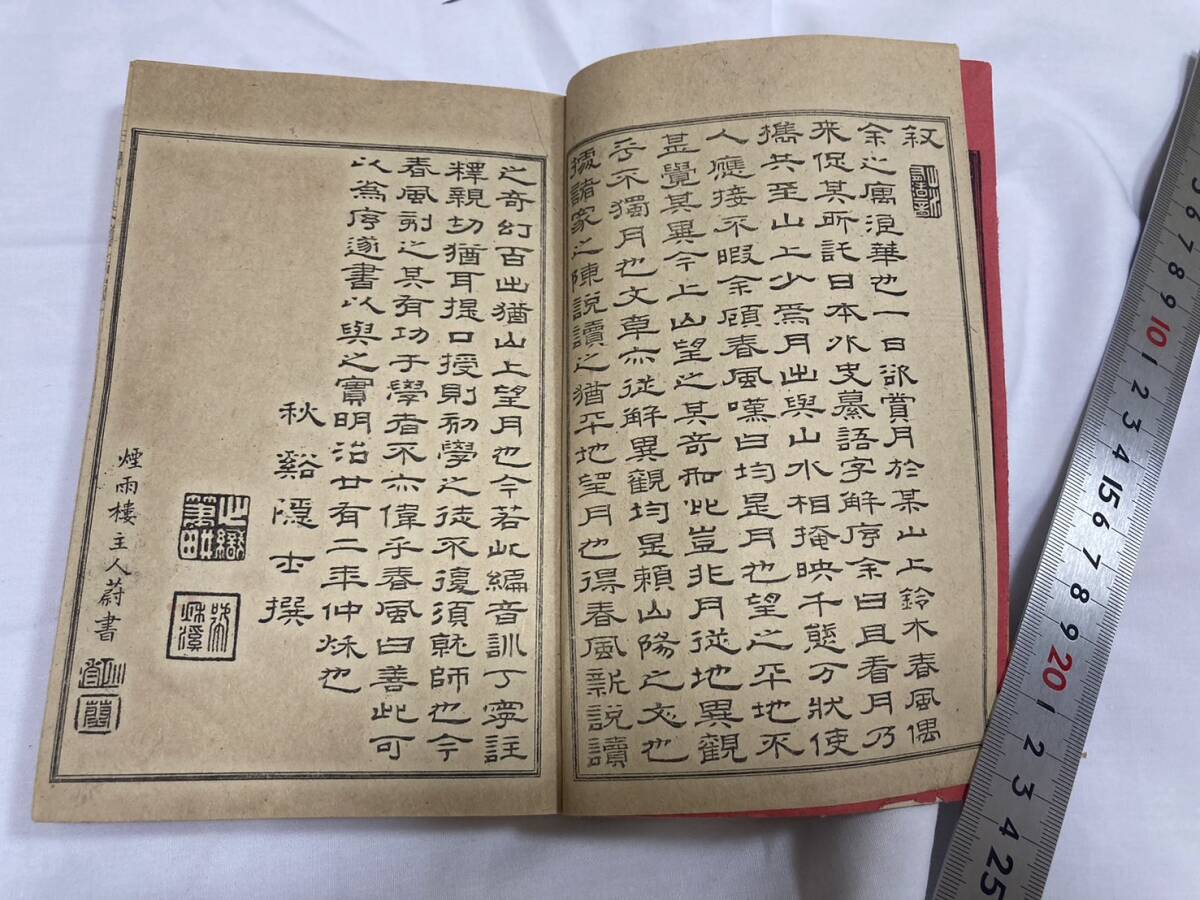 叙
余之寓浪華也一日欲賞月於某山上鈴木春風偶
來促其所託日本外史纂語字解序余曰且看月乃
攜共至山上少焉月出與山水相掩映千態万狀使
人應接不暇余顧春風嘆曰均是月也望之平地不
甚覺其異今上山望之其奇如此豈非月從地異觀
乎不獨月也文章亦從解異觀均是賴山陽之文也
據諸家之陳說讀之猶平地望月也得春風新說讀
之奇幻百出猶山上望月也今若此編音訓丁寧註
釋親切猶耳提口授則初學之徒不復須就師也今
春風刻之其有功于學者不亦偉乎春風曰善此可
以為序遂書以與之實明治廿有二年仲秌也
秋谿隱士撰
煙雨樓主人蔚書
10 1 2 3 4 15 6 7 8 9 20 1 2 3 4 25